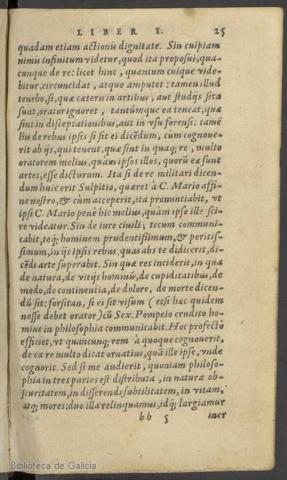 LIBER I. 25
quadam etiam actionũ dignitate. Sin cuipiam
nimis infinitum videtur, quod ita proposui, qua-
cunque de re: licet hinc, quantum cuique vide-
bitur, circuncidat, atque amputet: tamen illud
tenebo, si, quæ cæteris in artibus, aut studijs sita
sunt, orator ignoret, tantúmque ea teneat, quæ
sint in disceptationibus, aut in vsu forensi: tamẽ
his de rebus ipsis si sit ei dicẽdum, cùm cognoue-
rit ab ijs, qui tenent, quæ sint in quaq; re, multo
oratorem melius, quàm ipsos illos, quorũ eæ sunt
artes, esse dicturum. Ita si de re militari dicen-
dum huic erit Sulpitio, quæret à C. Mario affi-
ne nostro, & cùm acceperit, ita pronuntiabit, vt
ipsi C. Mario penè hic melius, quàm ipse ille sci-
re videatur. Sin de iure ciuili; tecum communi-
cabit, teq; hominem prudentissimum, & peritis-
simum, in ijs ipsis rebus, quas abs te didicerit, di-
cẽdi arte superabit. Sin quæ res inciderit, in qua
de natura, de vitijs hominũ, de cupiditatibus, de
modo, de continentia, de dolore, de morte dicen-
dũ sit: forsitan, si ei sit visum (etsi hæc quidem
nosse debet orator) cũ Sex. Pompeio erudito ho-
mine in philosophia communicabit. Hoc profectò
efficiet, vt quancunq; rem à quoque cognouerit,
de ea re multo dicat ornatius, quã ille ipse, vnde
cognorit. Sed si me audierit, quoniam philoso-
phia in tres partes est distributa, in naturæ ob-
scuritatem, in disserendi subtilitatem, in vitam,
atq; mores: duo illa relinquamus, idq; largiamur
bb 5 iner
Biblioteca de Galicia